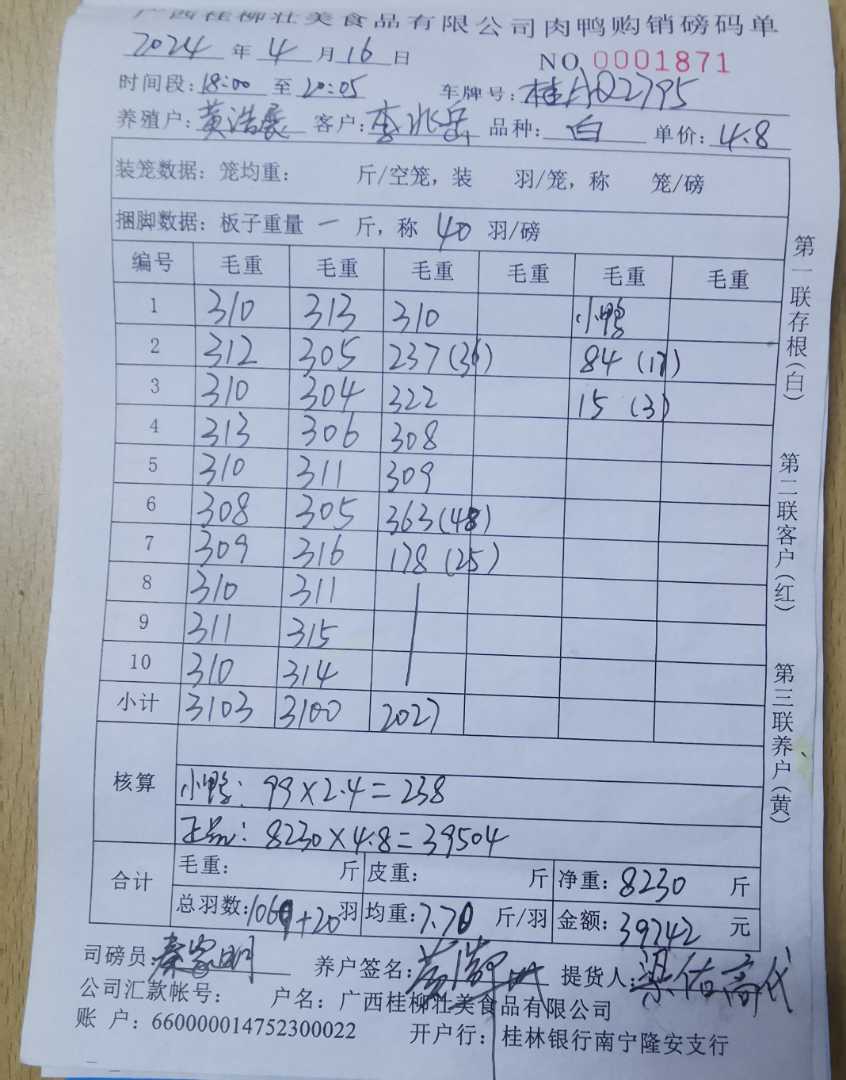 广西桂柳壮美食品有限公司肉鸭购销磅码单
2024 年 4 月 16 日 NO 0001871
时间段: 18:00 至 20:05 车牌号: 桂AQ2795
养殖户: 黄浩展 客户: 李兆岳 品种: 白 单价: 4.8
装笼数据: 笼均重: 斤/空笼, 装 羽/笼, 称 笼/磅
捆脚数据: 板子重量 一 斤, 称 40 羽/磅
编号 毛重 毛重 毛重 毛重 毛重 毛重
1 310 313 310 小鸭
2 312 305 237(31) 84 (17)
3 310 304 322 15 (3)
4 313 306 308
5 310 311 309
6 308 305 363(48)
7 309 316 178 (25)
8 310 311
9 311 315
10 310 314
小计 3103 3100 2027
核算
小鸭: 99×2.4=238
正品: 8230×4.8=39504
合计 毛重: 斤 皮重: 斤 净重: 8230 斤
总羽数: 1069+20 羽 均重: 7.70 斤/羽 金额: 39742 元
司磅员: 秦家明 养户签名: 提货人: 梁佑高代
公司汇款帐号: 户名: 广西桂柳壮美食品有限公司
账 户: 660000014752300022 开户行: 桂林银行南宁隆安支行
第一联存根(白) 第二联客户(红) 第三联养户(黄)